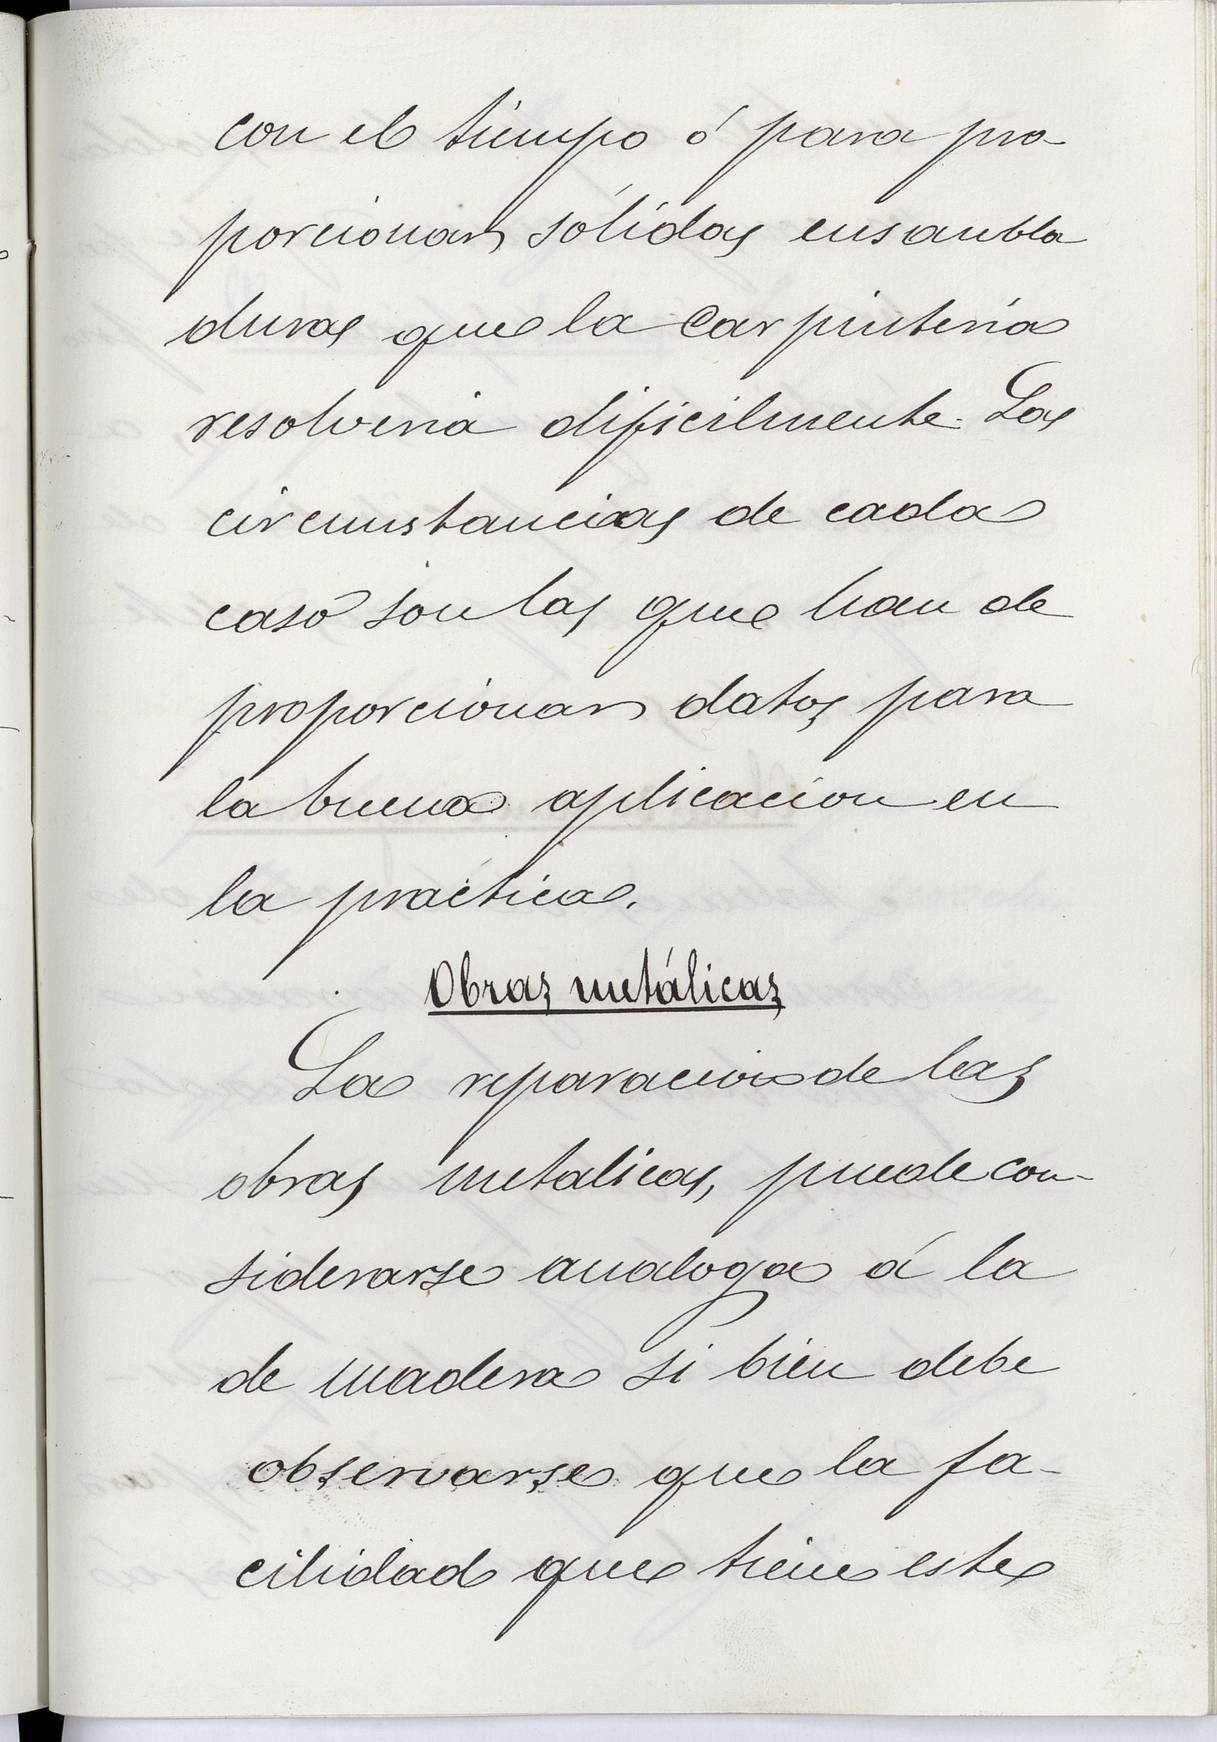 con el tiempo ó para pro-
porcionar sólidas ensambla
duras que la carpintería
resolvería dificilmente. Las
circunstancias de cada
caso son las que han de
proporcionar datos para
la buena aplicacion en
la practica.
Obras metálicas
La reparacion de las
obras metalicas, puede con-
siderarse analoga á la
de madera si bien debe
observarse que la fa-
cilidad que tiene este